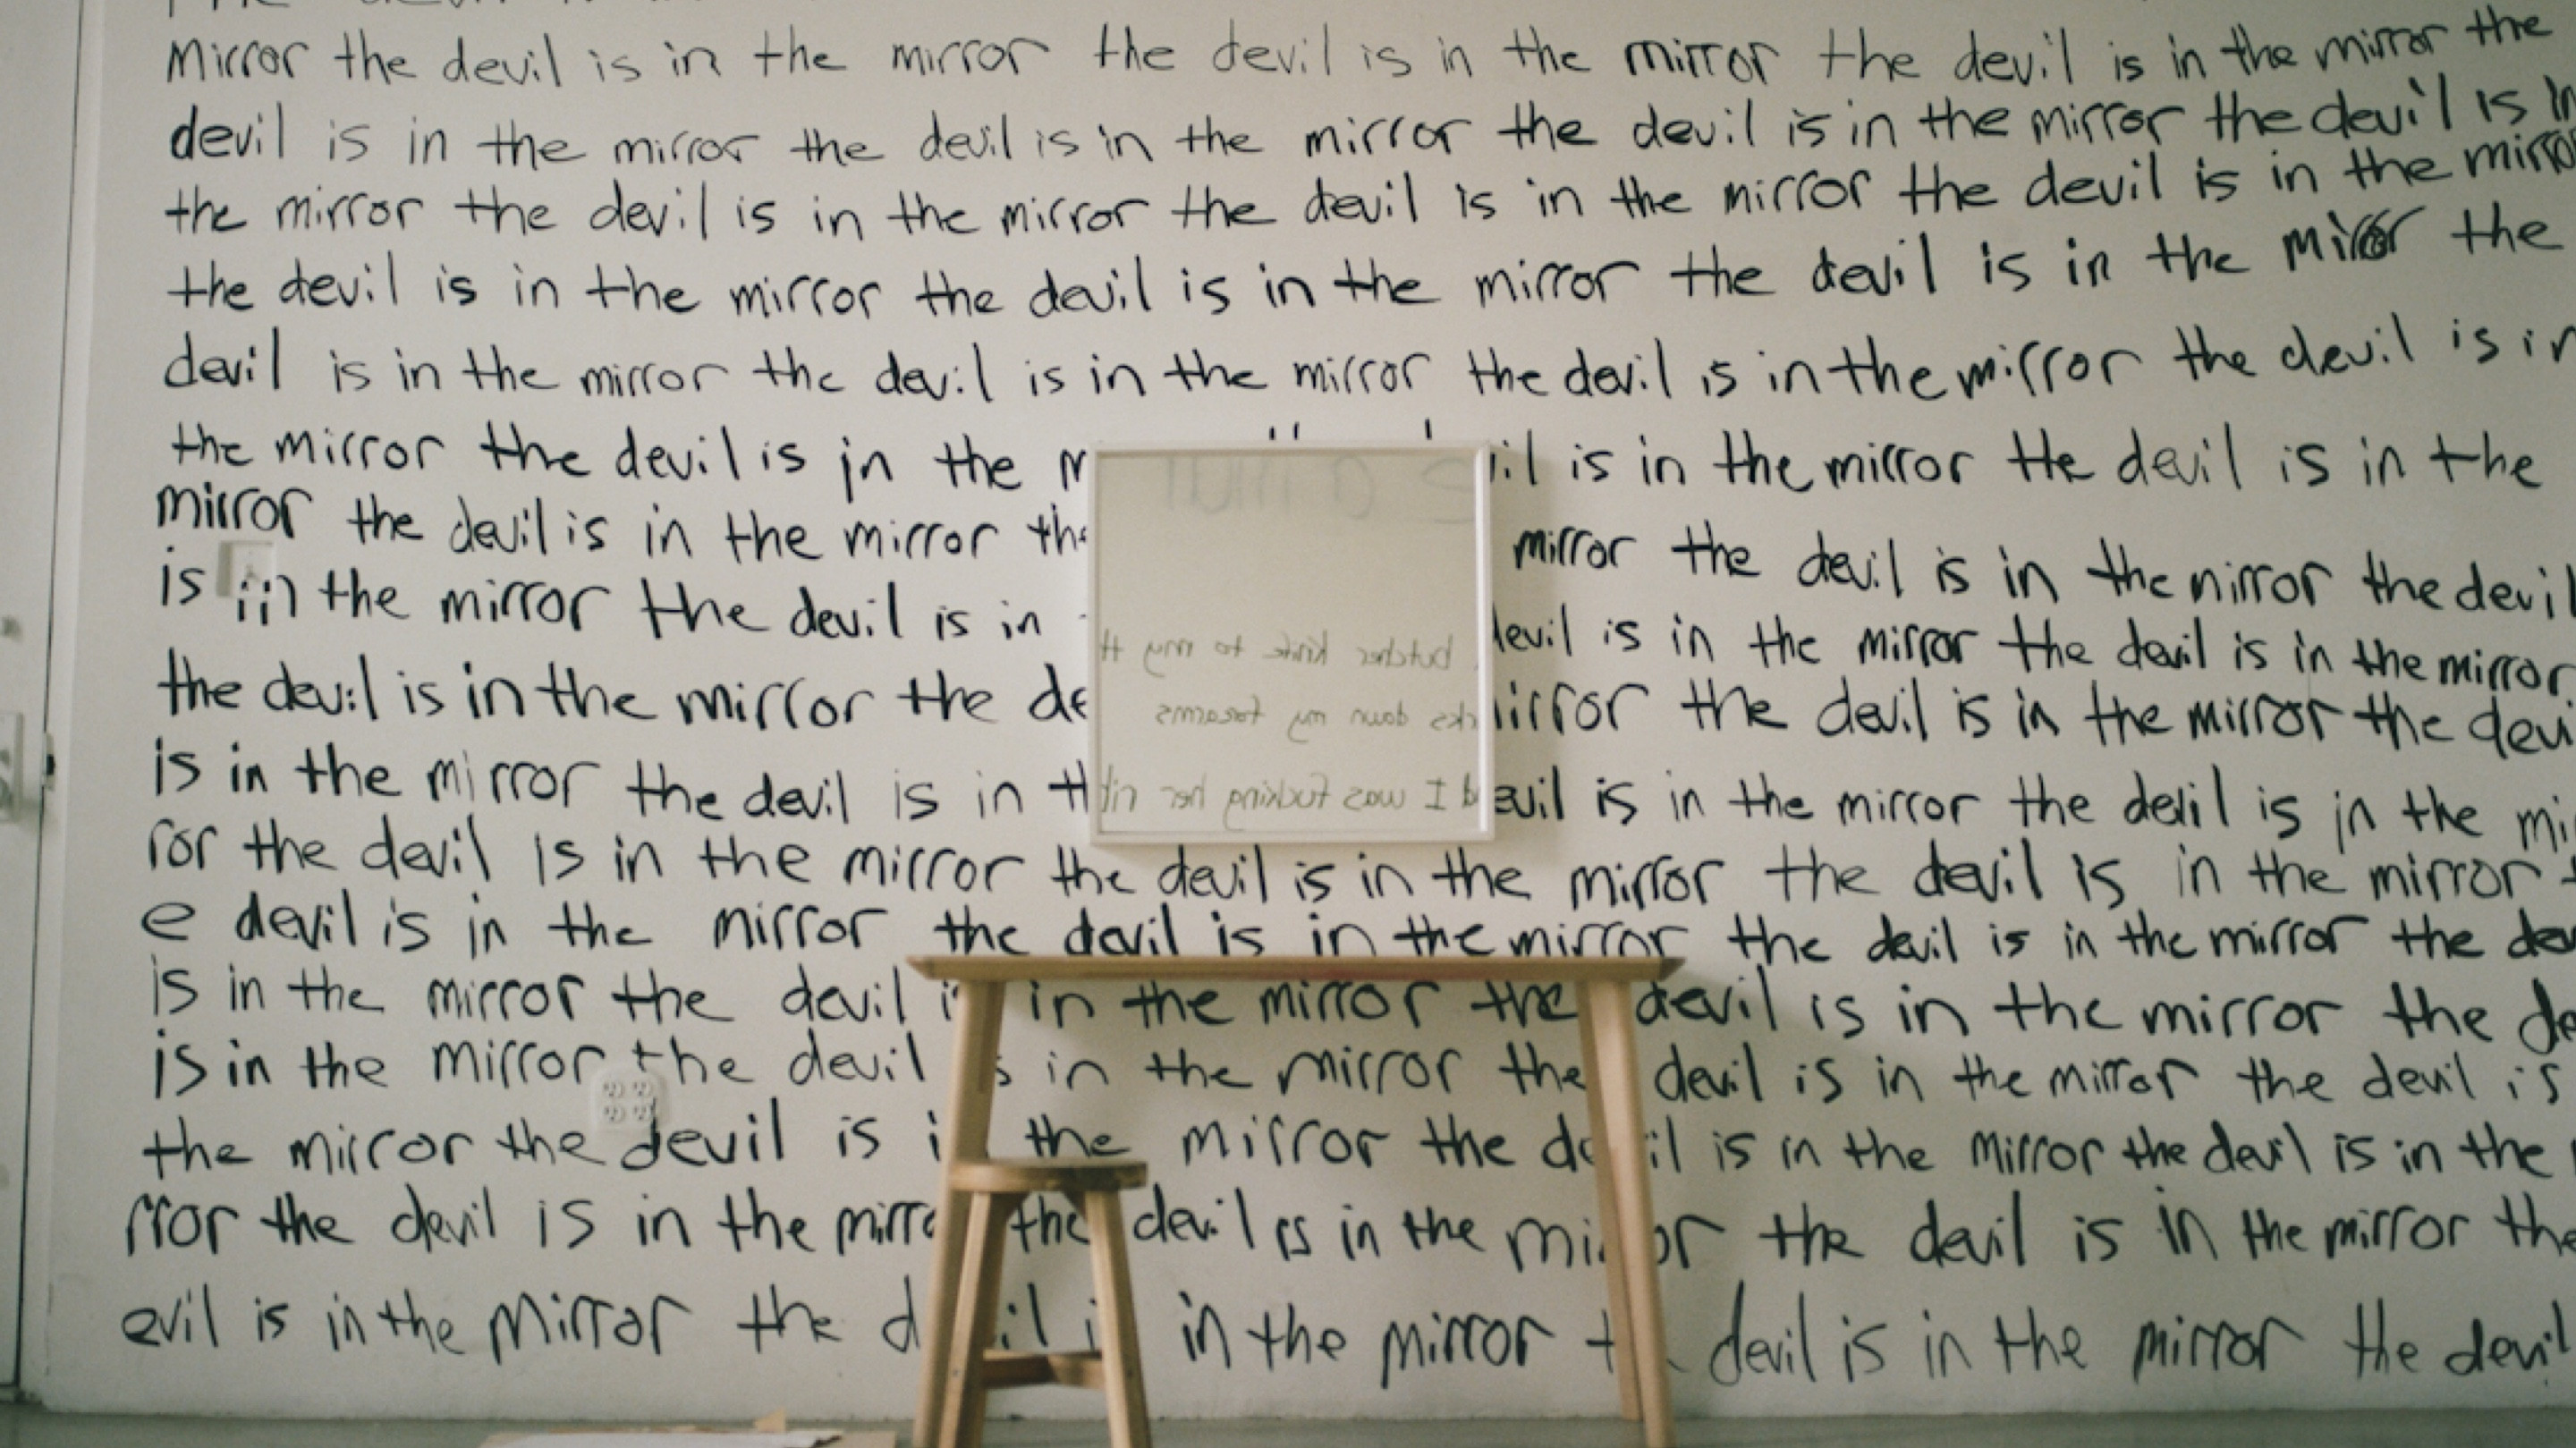 mirror the devil is in the mirror the devil is in the mirror the devil is in the mirror the
devil is in the mirror the devil is in the mirror the devil is in the mirror the devil is in
the mirror the devil is in the mirror the devil is in the mirror the devil is in the mirror
the devil is in the mirror the devil is in the mirror the devil is in the mirror the
devil is in the mirror the devil is in the mirror the devil is in the mirror the devil is in
the mirror the devil is in the is in the mirror the devil is in the
mirror the devil is in the mirror mirror the devil is in the mirror the devil
is in the mirror the devil is in devil is in the mirror the devil is in the mirror
the devil is in the mirror the the devil is in the mirror the
is in the mirror the devil is in is in the mirror the devil is in the
ror the devil is in the mirror the devil is in the mirror the devil is in the mirror
e devil is in the mirror the devil is in the mirror the devil is in the mirror the
is in the mirror the devil in the mirror the devil is in the mirror the
is in the mirror the devil in the mirror the devil is in the mirror the devil is
the mirror the devil is the mirror the is in the mirror the devil is in the
rror the devil is in the the devil is in the the devil is in the mirror the
evil is in the mirror the in the mirror devil is in the mirror the devil
butcher knife to my
down my forearms
I was fucking her